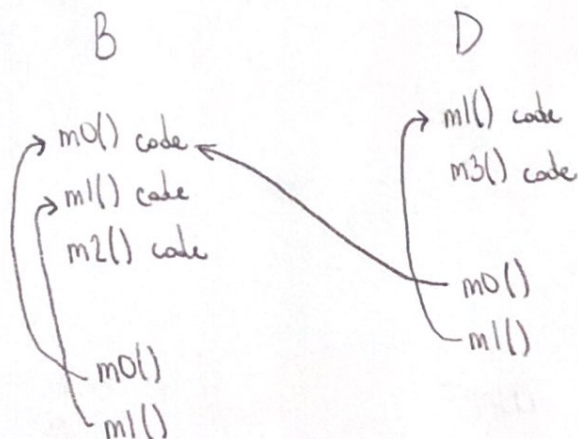 B
m0() code
m1() code
m2() code
m0()
m1()
D
m1() code
m3() code
m0()
m1()